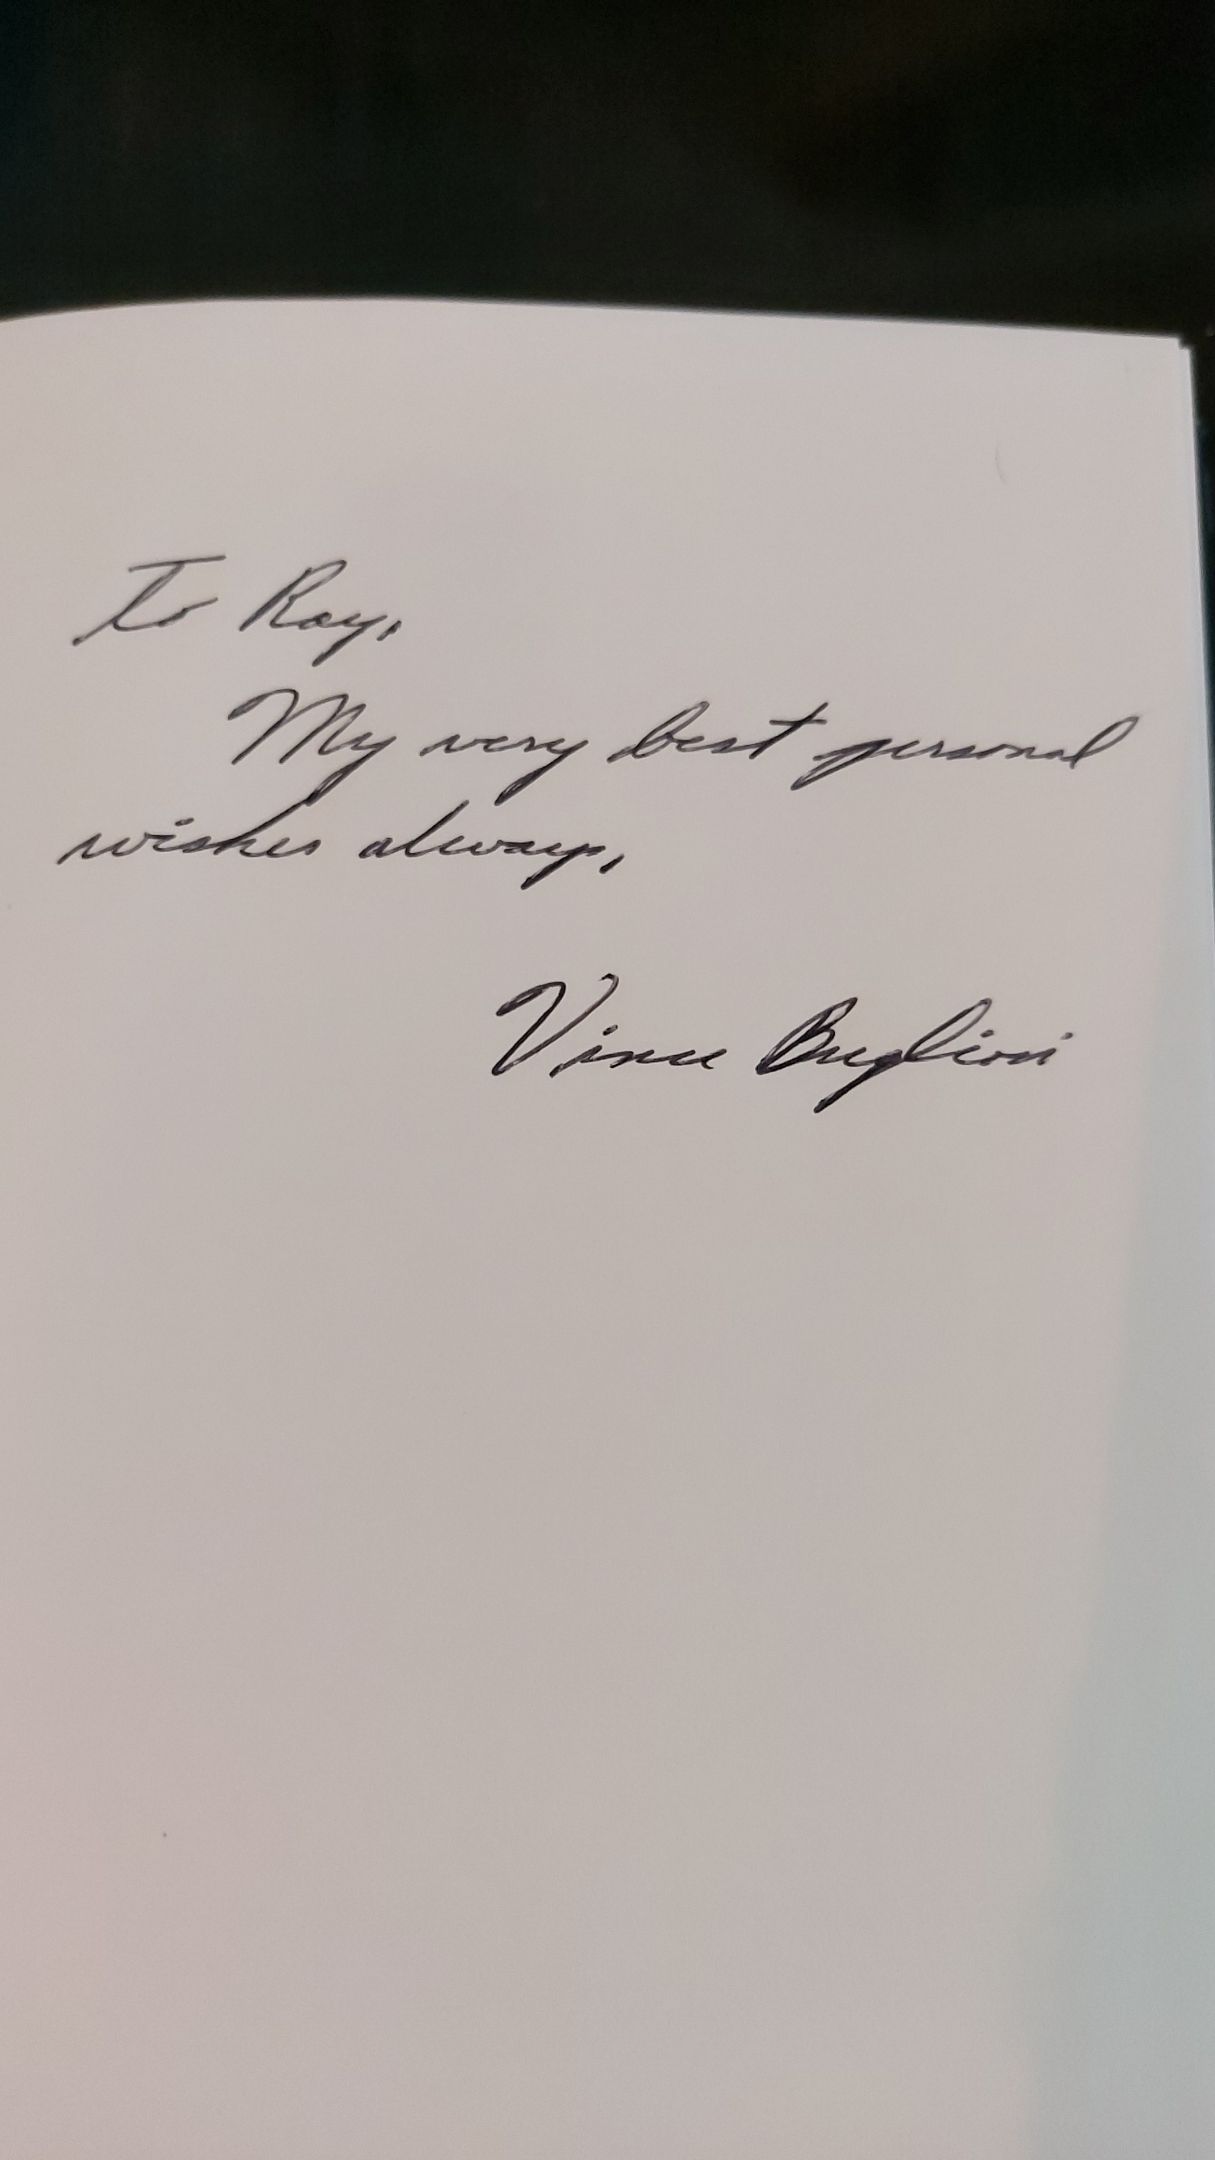 To Ray,
My very best personal
wishes always,
Vince Bugliosi